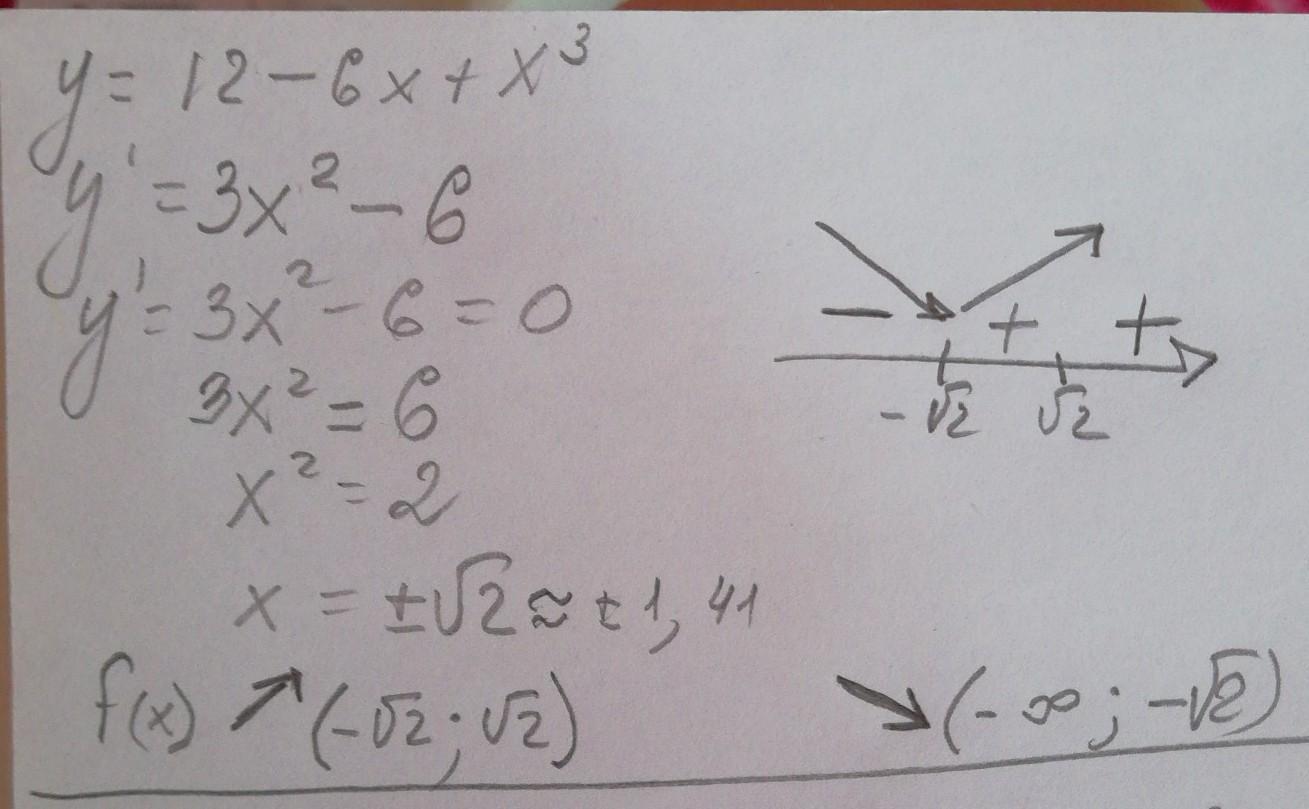 y = 12 - 6x + x³
y' = 3x² - 6
y' = 3x² - 6 = 0
3x² = 6
x² = 2
x = ±√2 ≈ ±1,41
f(x) ↗ (-√2; √2) ↘ (-∞; -√2)
- + +
-√2 √2